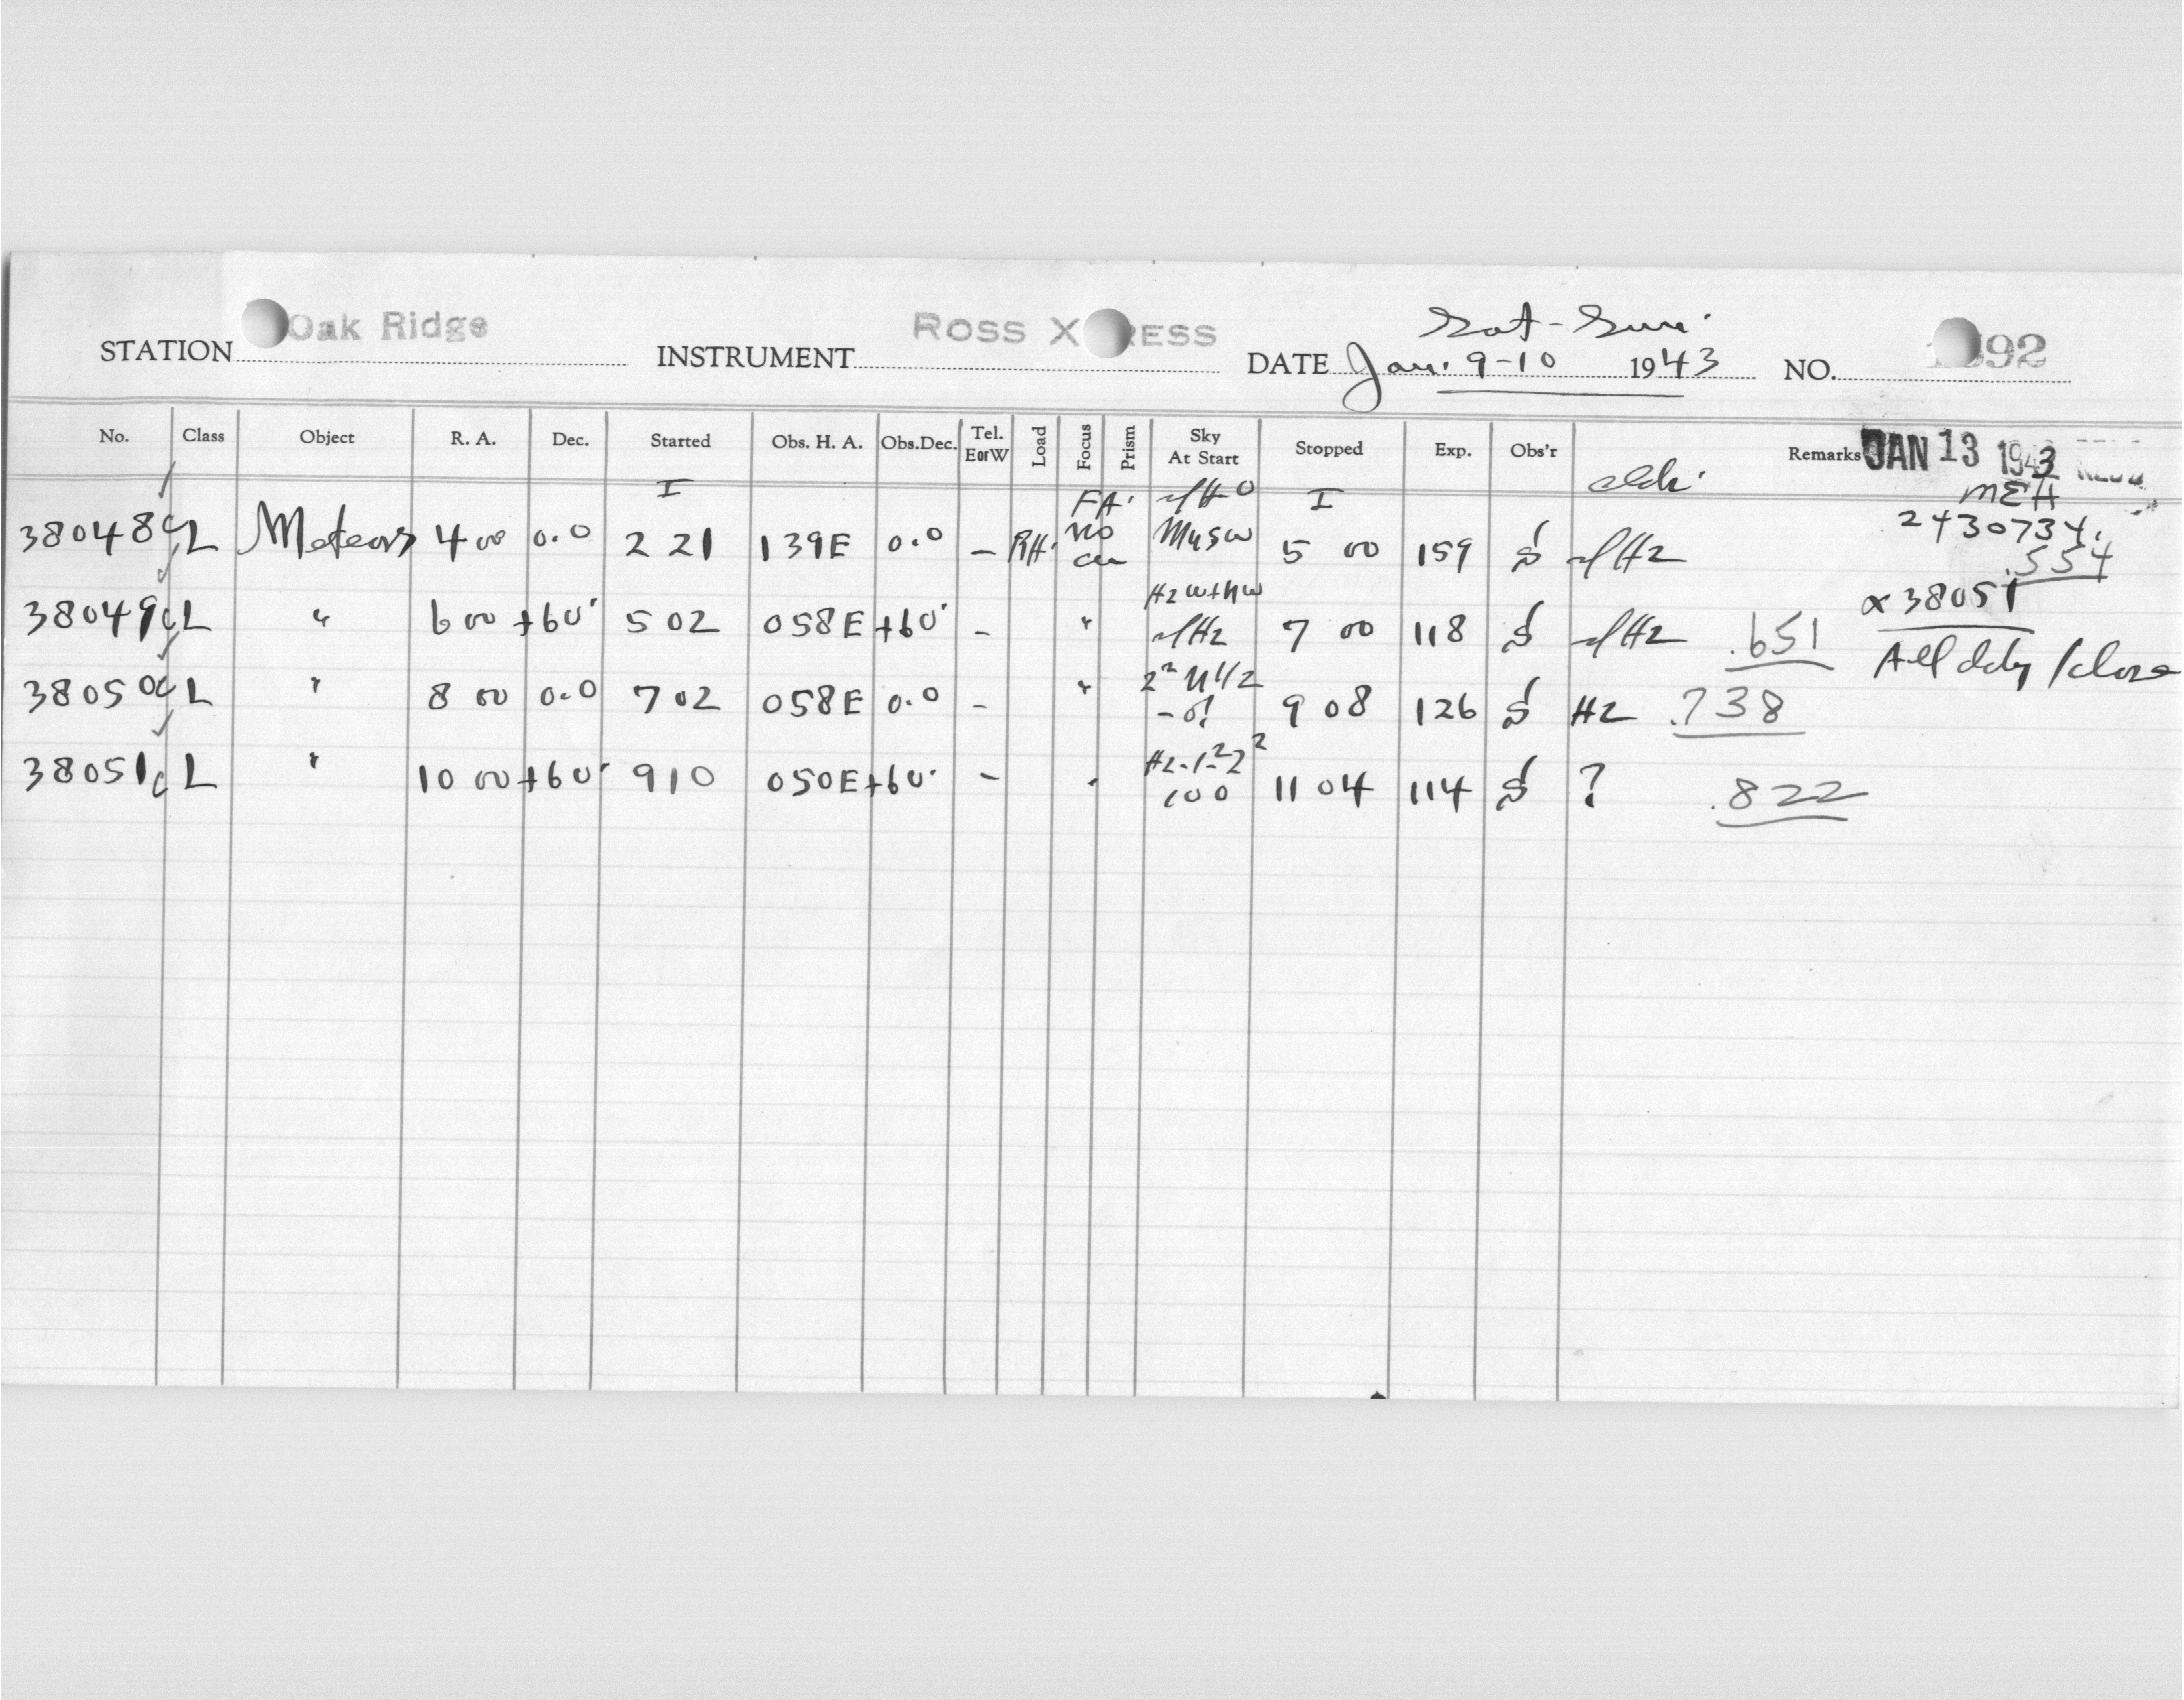 Sat-Sun.
STATION Oak Ridge INSTRUMENT ROSS X RESS DATE Jan. 9-10 1943 NO. 92
No. Class Object R. A. Dec. Started Obs. H. A. Obs.Dec. Tel. EorW Load Focus Prism Sky At Start Stopped Exp. Obs'r Remarks JAN 13 1943
I FA. I MEH
38048 c L Meteors 4 00 0.0 2 21 139E 0.0 – RH. no 5 00 159 S Hz 2430734.
.554
38049 c L " 6 00 +60. 5 02 058E +60 – " Hz W+NW Hz 7 00 118 S Hz .651 x 38051
38050 c L " 8 00 0.0 7 02 058E 0.0 – " 9 08 126 S Hz .738 All ddy / close
38051 c L " 10 00 +60. 9 10 050E +60. – " 100 11 04 114 S ? .822